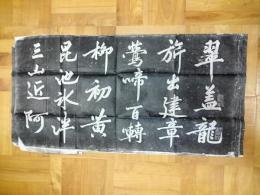 翠蓋龍
旂出建章
鶯啼百囀
柳初黃
昆池冰泮
三山近阿